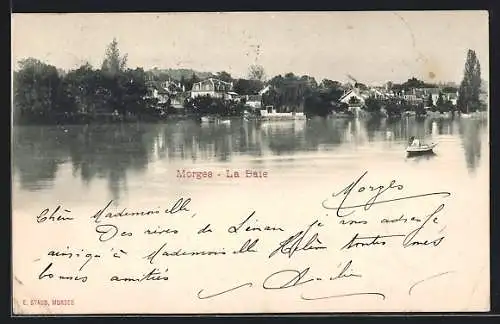 Morges - La Baie
Morges
Chère Mademoiselle,
Des rives du Léman je vous adresse
ainsi qu'à Mademoiselle Hélène toutes mes
bonnes amitiés
E. STAUB, MORGES